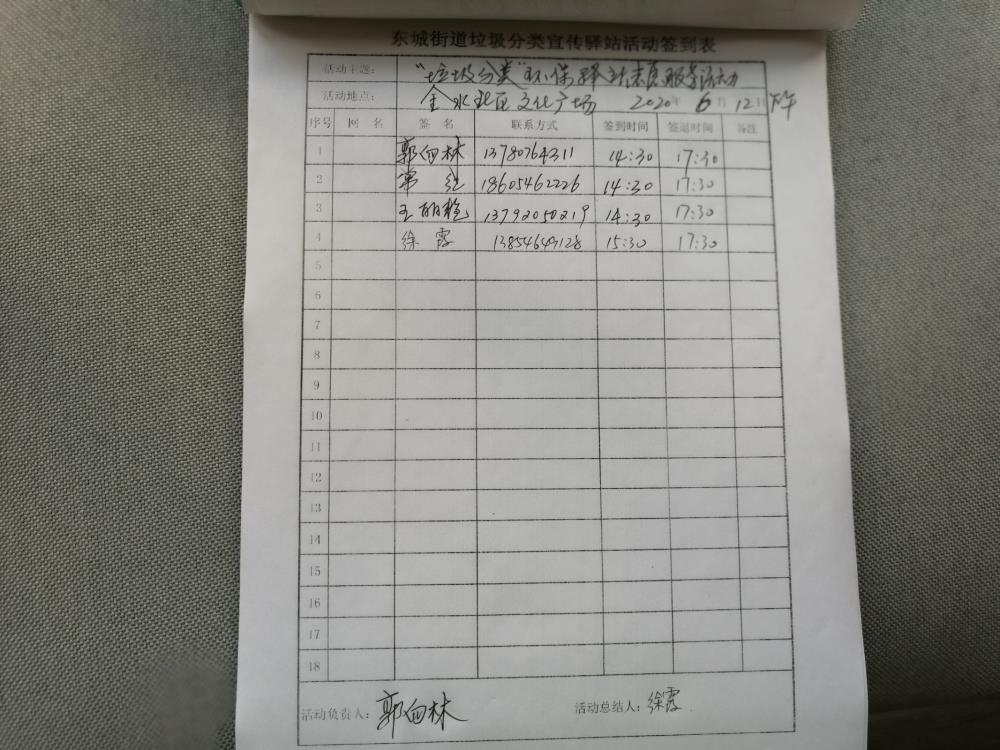 东城街道垃圾分类宣传驿站活动签到表
活动主题： “垃圾分类”环保驿站志愿服务活动
活动地点： 金水北区文化广场 2020年 6月 12日 下午
序号 网 名 签 名 联系方式 签到时间 签退时间 备注
1 郭向林 13780764311 14:30 17:30
2 常 红 18605462226 14:30 17:30
3 王丽艳 13792050219 14:30 17:30
4 徐 霞 13854649128 15:30 17:30
5
6
7
8
9
10
11
12
13
14
15
16
17
18
活动负责人： 郭向林 活动总结人： 徐霞